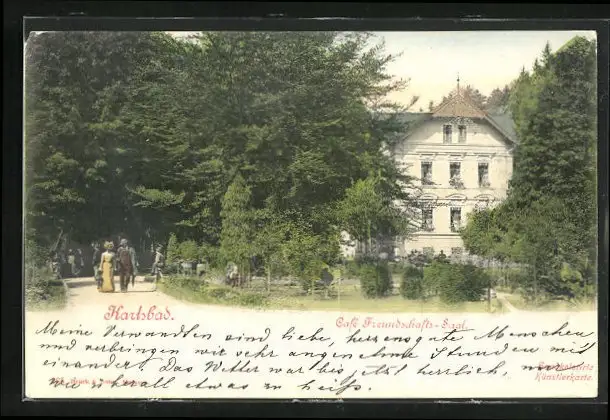 Karlsbad.
Café Freundschafts-Saal.
Meine Verwandten sind liebe, herzensgute Menschen
und verbringen wir sehr angenehme Stunden mit
einander. Das Wetter war bis jetzt herrlich, nur
wie überall etwas zu heiss.
Künstlerkarte.